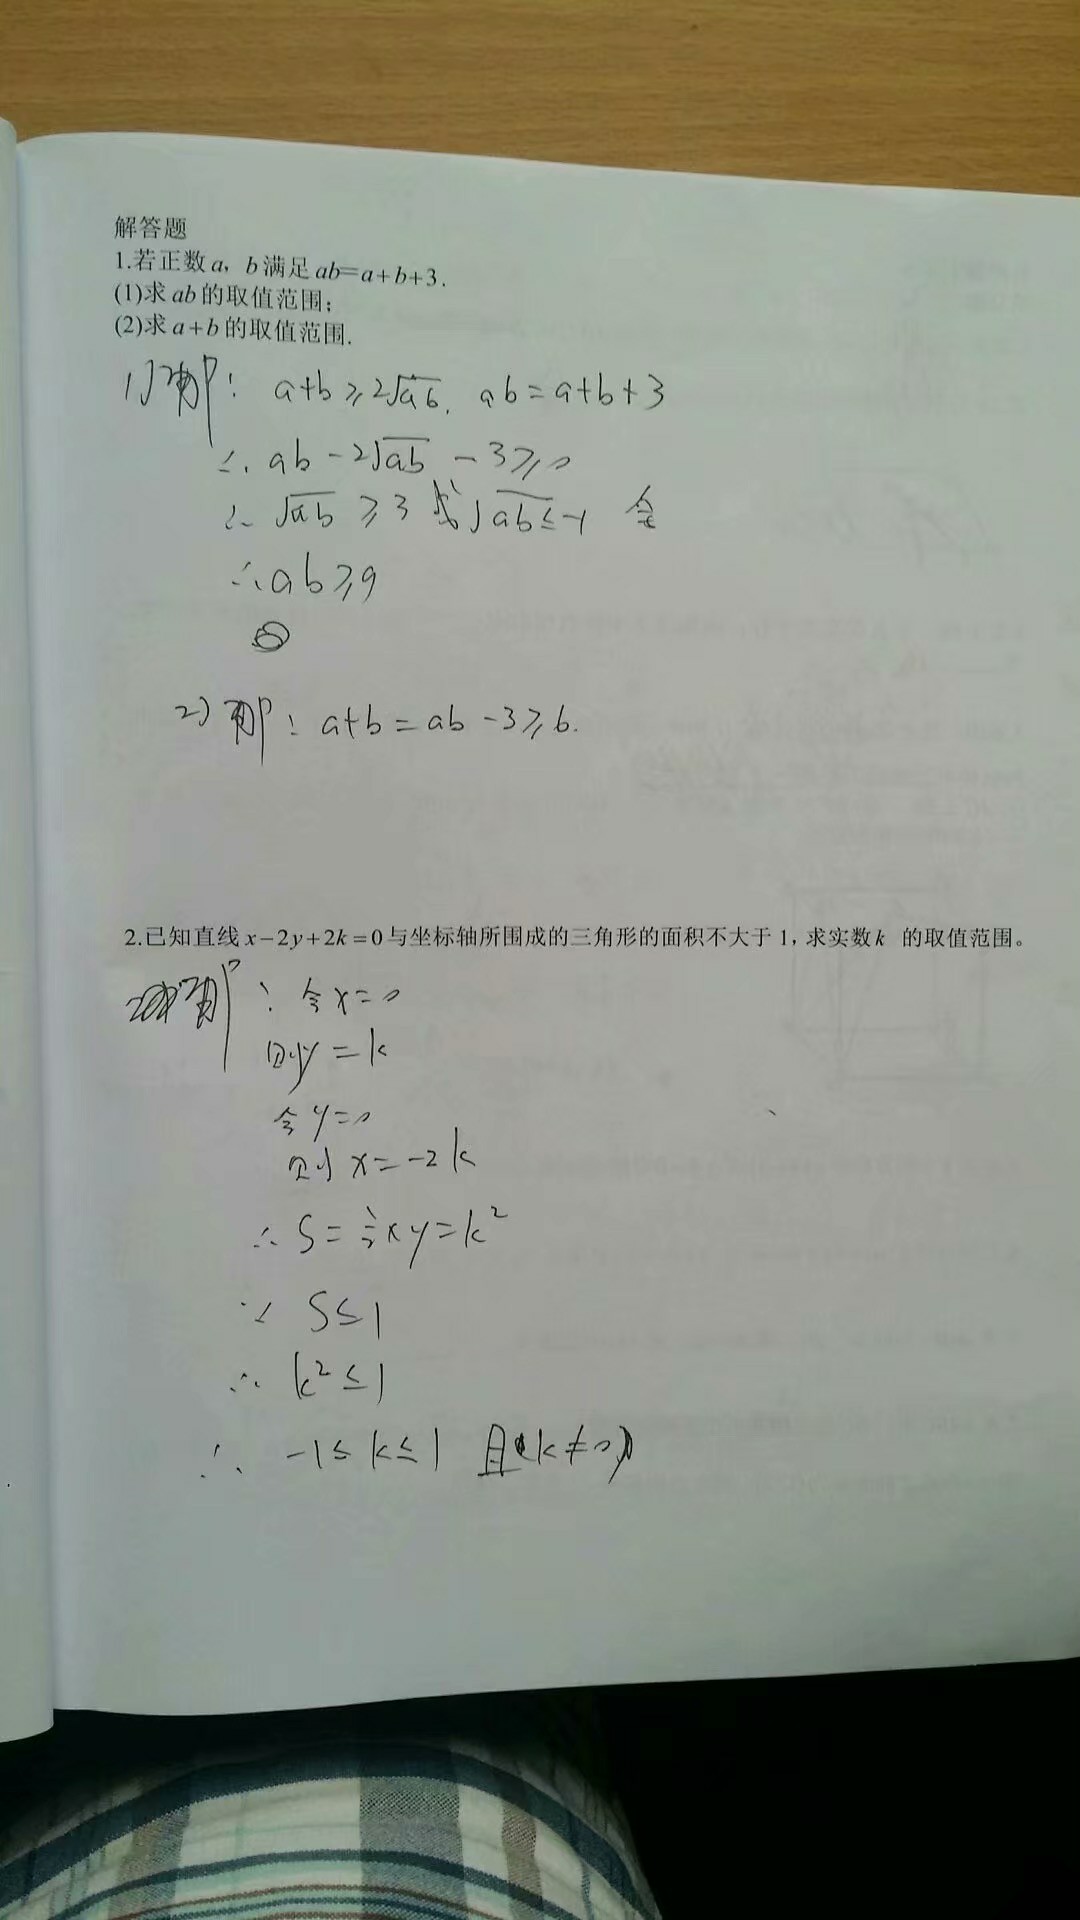 解答题
1.若正数a，b满足ab=a+b+3.
(1)求ab的取值范围；
(2)求a+b的取值范围.
1) 解：a+b≥2√ab. ab=a+b+3
∴ ab-2√ab-3≥0
∴ √ab≥3 或√ab≤-1 舍
∴ab≥9
2) 解：a+b=ab-3≥6.
2.已知直线x-2y+2k=0与坐标轴所围成的三角形的面积不大于1，求实数k 的取值范围。
解：令x=0
则y=k
令y=0
则x=-2k
∴S=½xy=k²
∵ S≤1
∴ k²≤1
∴ -1≤k≤1 且(k≠0)